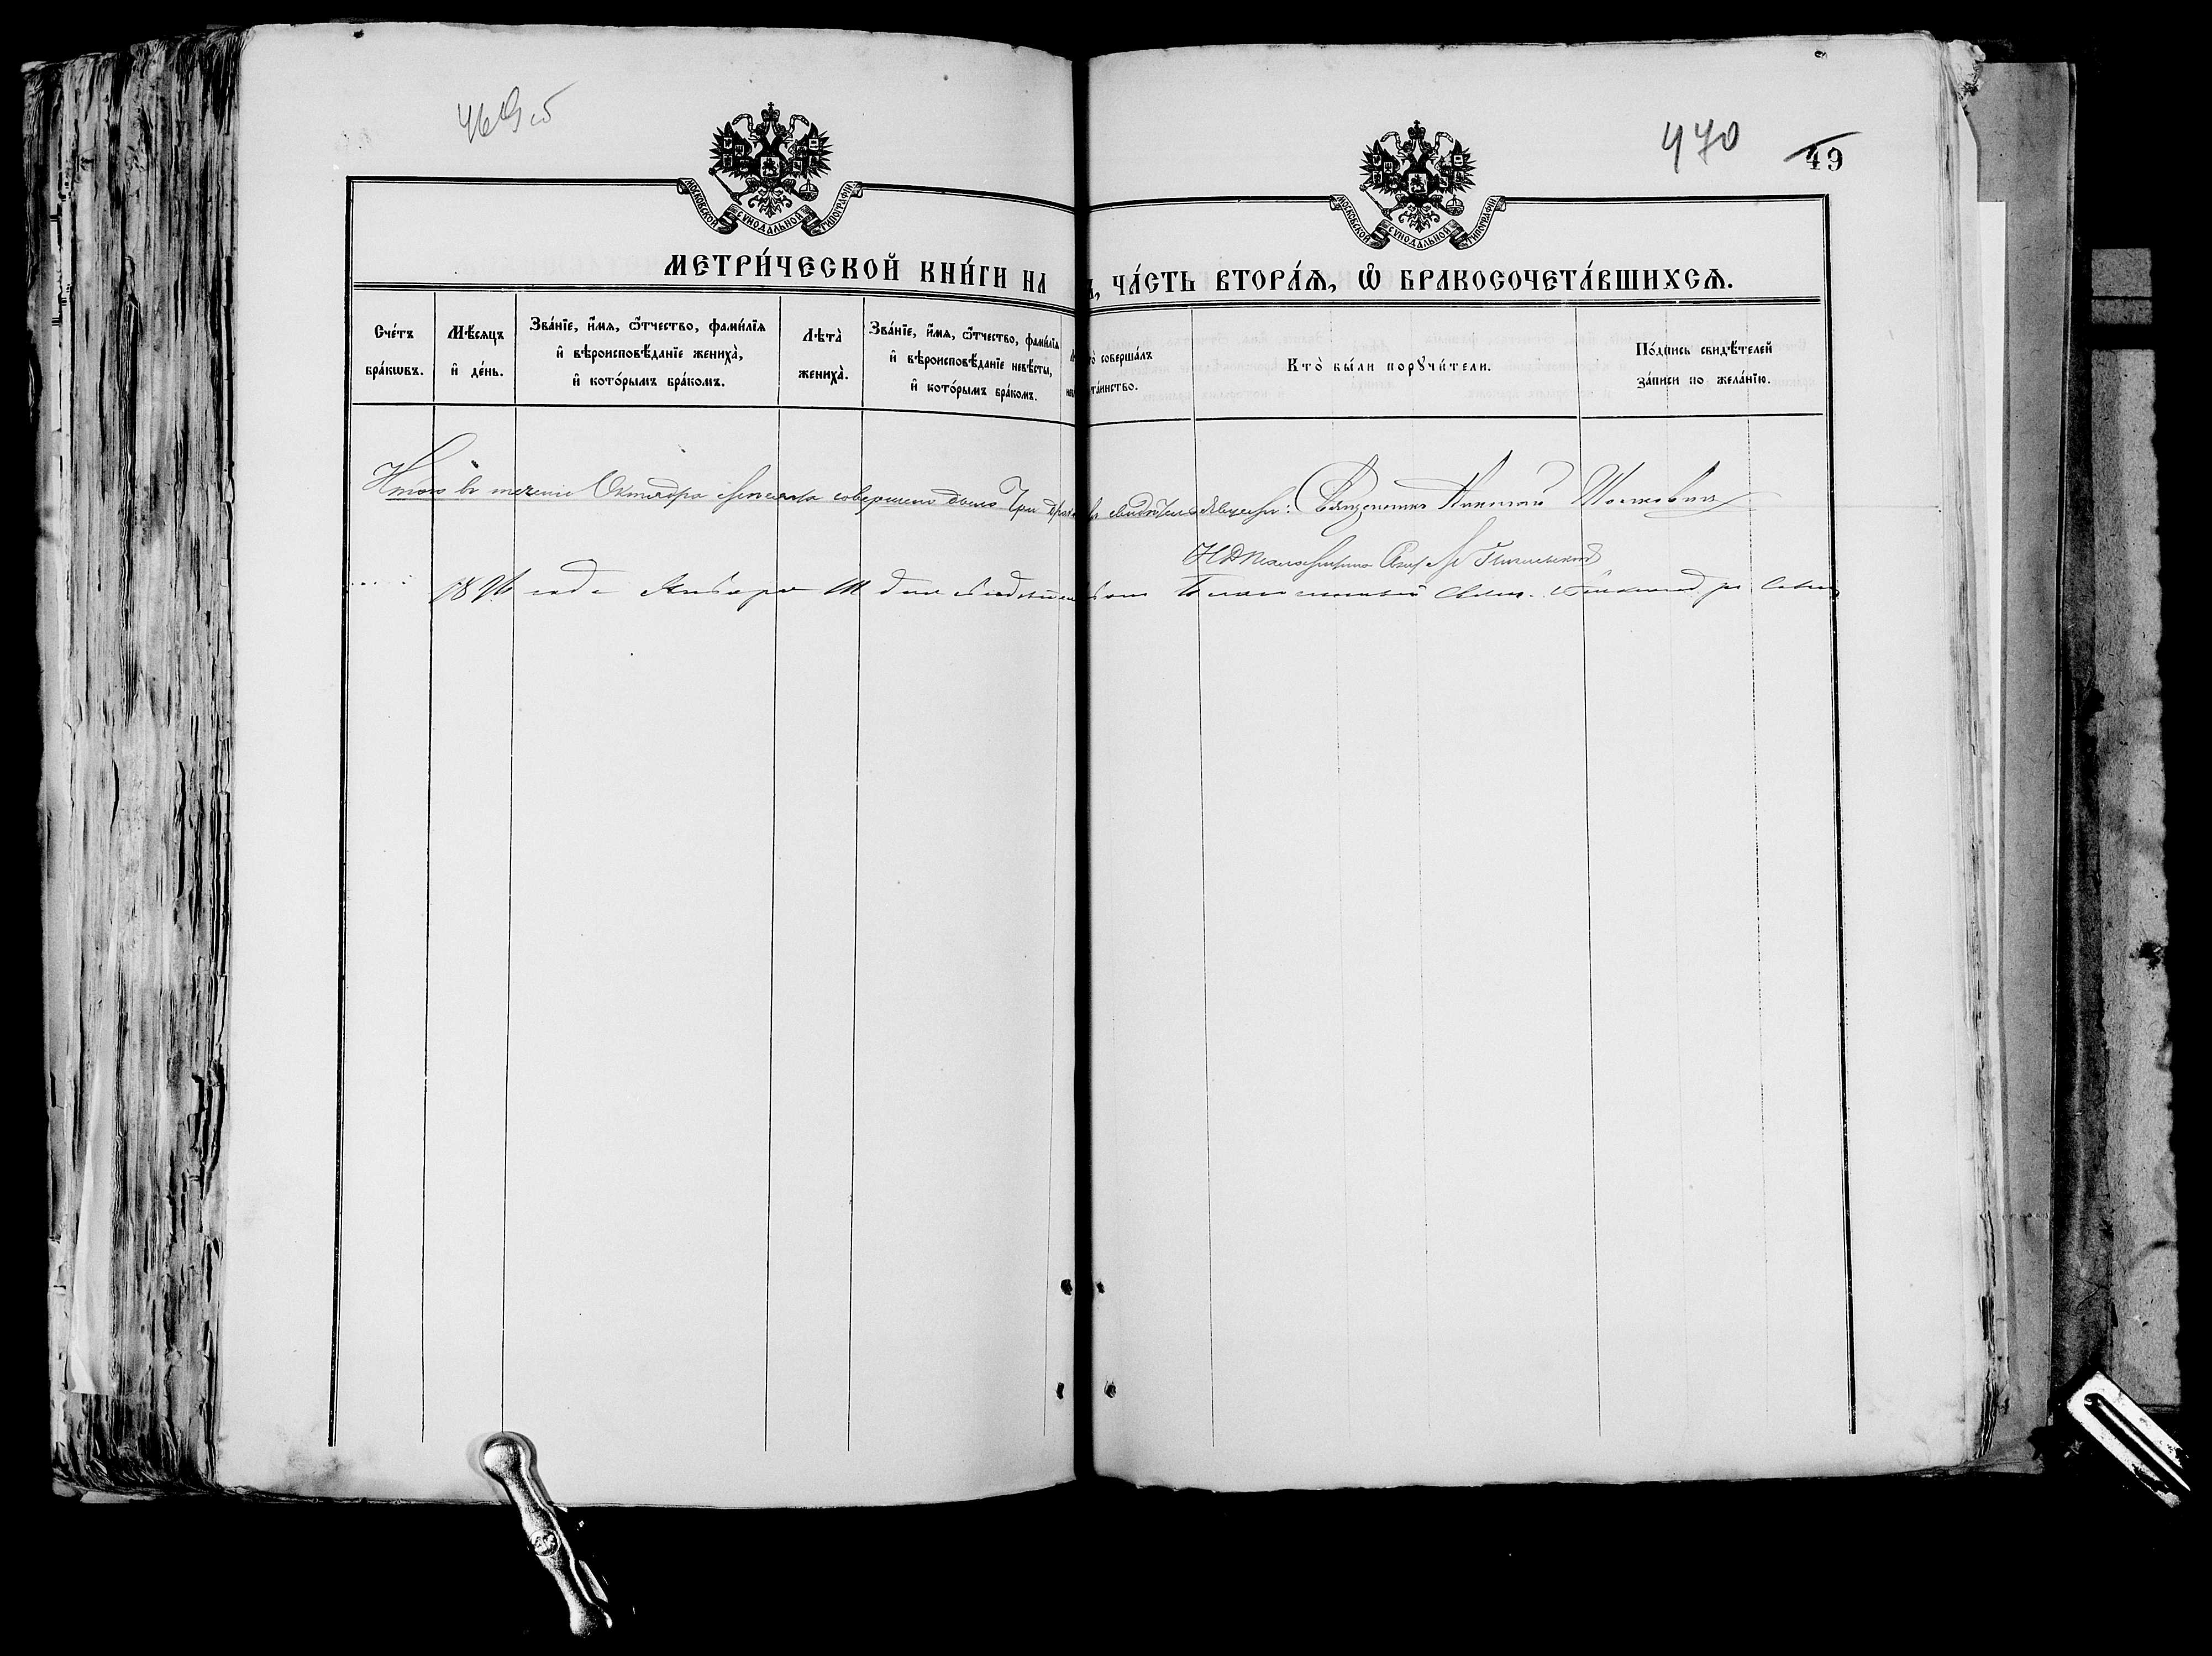 469 об
470
49
МОСКОВСКОЙ СѴНОДАЛЬНОЙ ТИПОГРАФІИ
МОСКОВСКОЙ СѴНОДАЛЬНОЙ ТИПОГРАФІИ
МЕТРИ́ЧЕСКОЙ КНИ́ГИ НА
, ЧА́СТЬ ВТОРА́Ѧ, Ѽ БРАКОСОЧЕТА́ВШИХСѦ.
Сче́тъ бра́кѡвъ.
Мѣ́сяцъ и҆ де́нь.
Зва́нїе, и҆́мѧ, ѻ҆́тчество, фами́лїѧ и҆ вѣроисповѣ́данїе жениха̀, и҆ кото́рымъ бра́комъ.
Лѣта̀ жениха̀.
Зва́нїе, и҆́мѧ, ѻ҆́тчество, фами́лїѧ и҆ вѣроисповѣ́данїе невѣ́сты, и҆ кото́рымъ бра́комъ.
соверша́лъ та́инство.
Кто̀ бы́ли порꙋчи́тели.
По́дпись свидѣ́телей за́писи по жела́нїю.
Итого въ теченіи Октября мѣсяца совершено было Три брака свидѣтельствуемъ: Священникъ Николай
И.д. Псаломщика
года Января дня